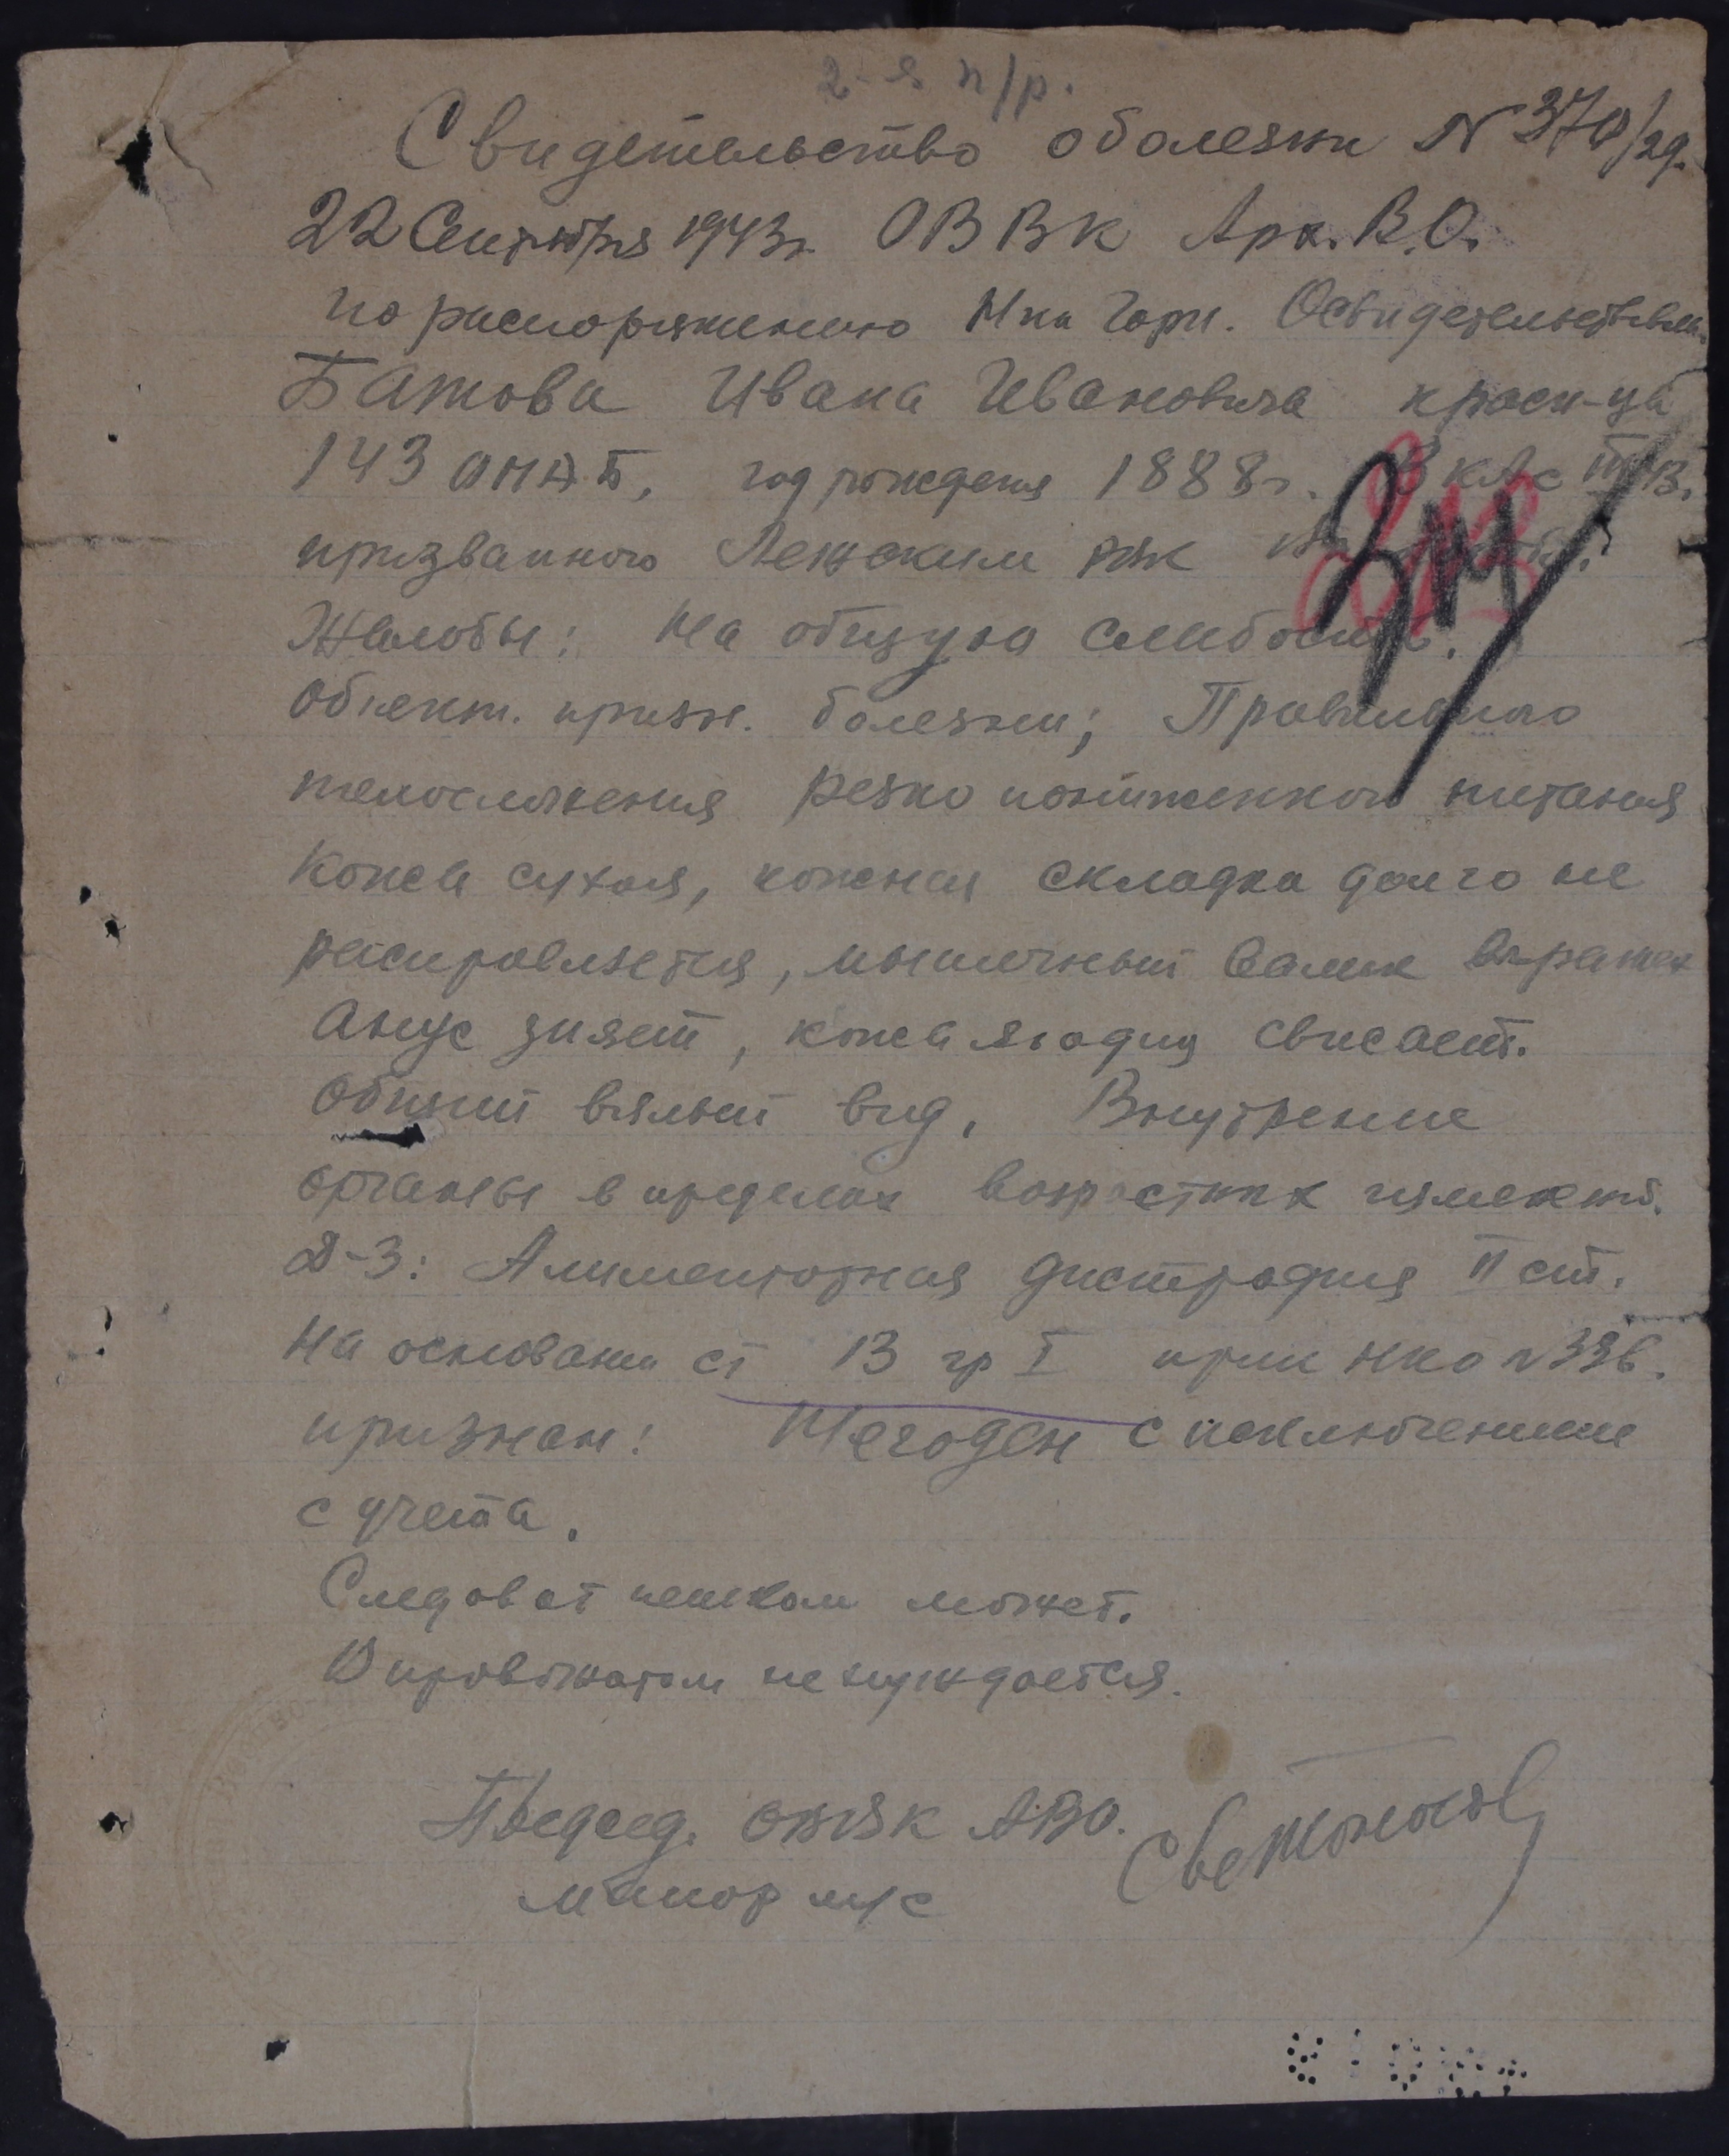 2-я п/р.
Свидетельство о болезни N 370/29.
22 Сентября 1943г. ОВВК Арх. В.О.
по распоряжению Нка Гарн. Освидетельствован
Батова Ивана Ивановича красн-ца
143 год рождения 1888г.
призванного Лежским рвк
Жалобы: На общую слабость.
Объект. призн. болезни; Правильного
телосложения резко пониженного питания
Кожа сухая, кожная складка долго не
расправляется, мышечный валик выражен
Анус зияет, кожа ягодиц свисает.
Общий вялый вид. Внутрение
органы в пределах возрастных изменений.
Д-З: Алиментарная дистрофия II ст.
На основании ст 13 гр I прик НКО N 336.
признан: Негоден с исключением
с учета.
Следоват пешком может.
В провожатом не нуждается.
Председ. ОВВК АВО.
майор м/с